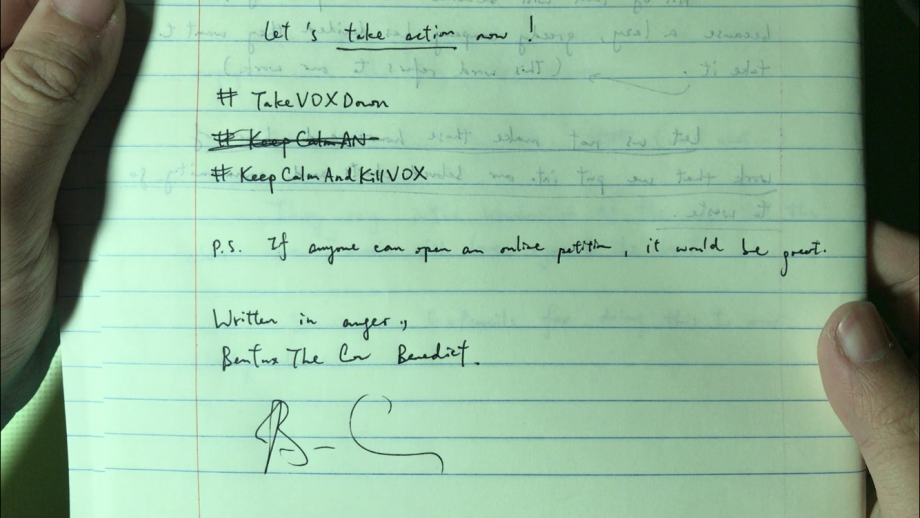 Let's take action now!
# TakeVOXDown
# Keep Calm AN
# KeepCalmAndKillVOX
P.S. If anyone can open an online petition, it would be great.
Written in anger,
The Benedict.
B-C